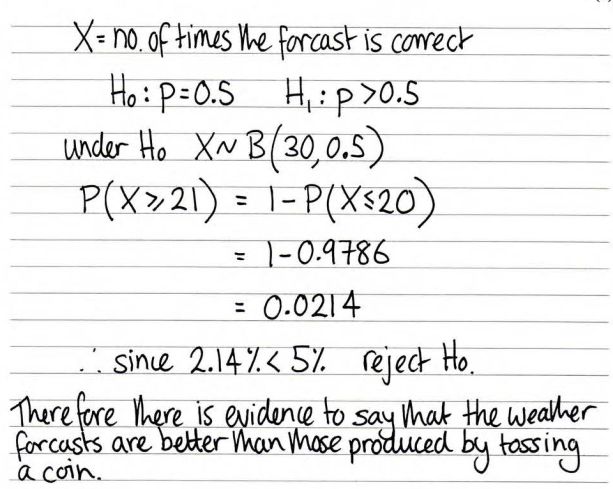 X = no. of times the forcast is correct
H₀ : p = 0.5 H₁ : p > 0.5
under H₀ X ~ B(30, 0.5)
P(X ⩾ 21) = 1 - P(X ≤ 20)
= 1 - 0.9786
= 0.0214
∴ since 2.14% < 5% reject H₀.
Therefore there is evidence to say that the weather
forcasts are better than those produced by tossing
a coin.